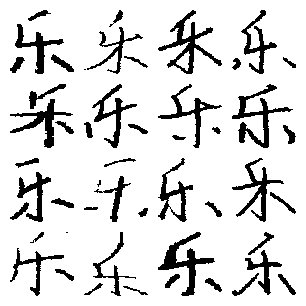 乐乐乐乐
乐乐乐乐
乐乐乐乐
乐乐乐乐